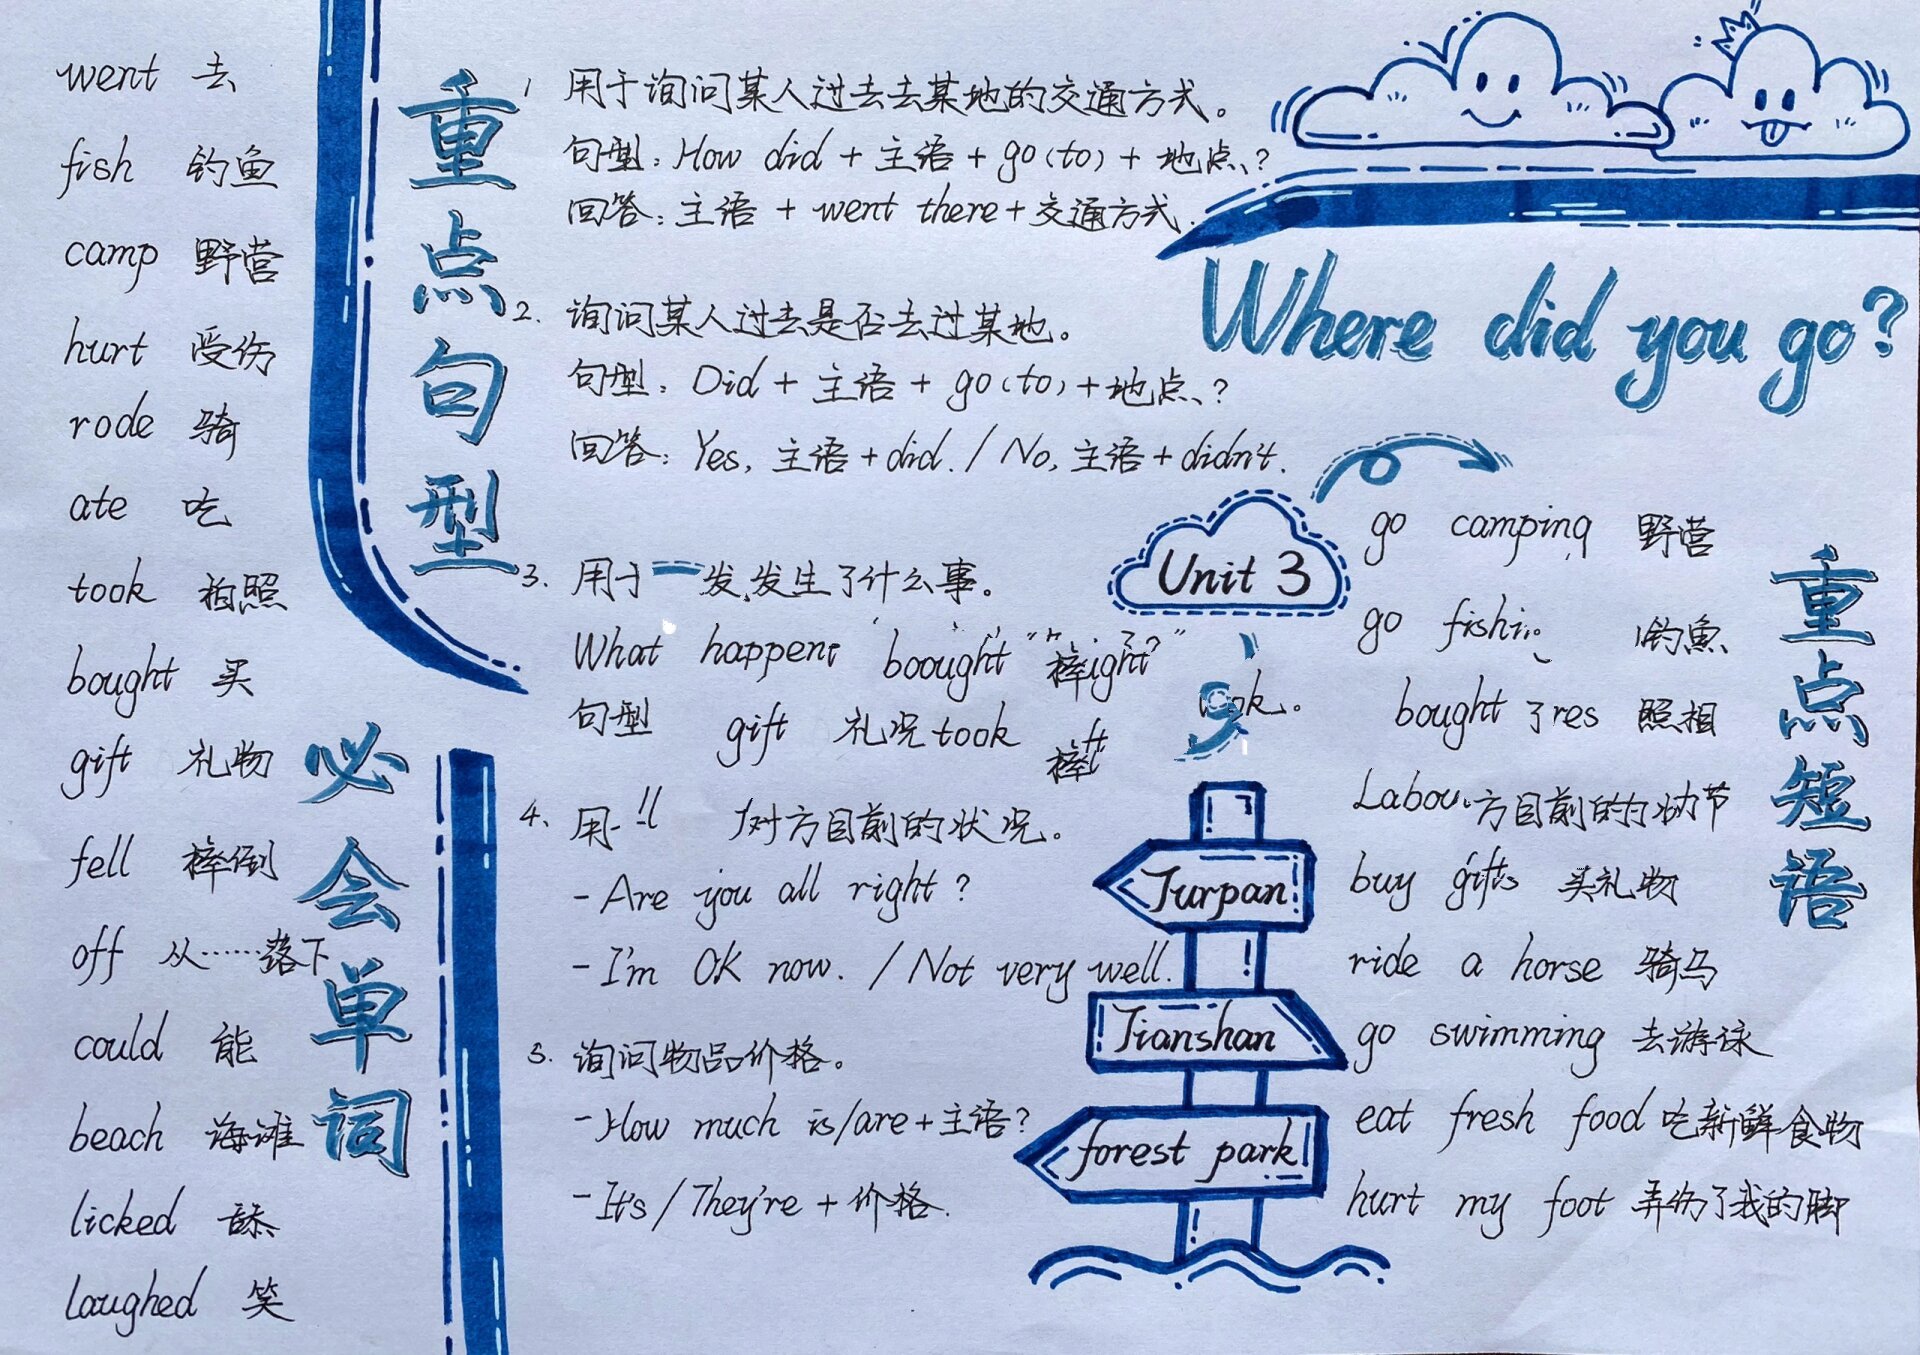 went 去
fish 钓鱼
camp 野营
hurt 受伤
rode 骑
ate 吃
took 拍照
bought 买
gift 礼物
fell 摔倒
off 从……落下
could 能
beach 海滩
licked 舔
laughed 笑
必会单词
重点句型
1 用于询问某人过去去某地的交通方式。
句型：How did + 主语 + go (to) + 地点？
回答：主语 + went there + 交通方式.
2. 询问某人过去是否去过某地。
句型：Did + 主语 + go (to) + 地点？
回答：Yes, 主语 + did. / No, 主语 + didn't.
3. 用于 发发生了什么事。
What happene boought
句型 gift 礼况 took 摔
4. 用 对方目前的状况。
- Are you all right?
- I'm OK now. / Not very well.
5. 询问物品价格。
- How much is/are + 主语?
- It's / They're + 价格.
Where did you go?
Unit 3
Turpan
Tianshan
forest park
重点短语
go camping 野营
go 钓鱼
bought 了res 照相
方目前的 节
buy gifts 买礼物
ride a horse 骑马
go swimming 去游泳
eat fresh food 吃新鲜食物
hurt my foot 弄伤了我的脚